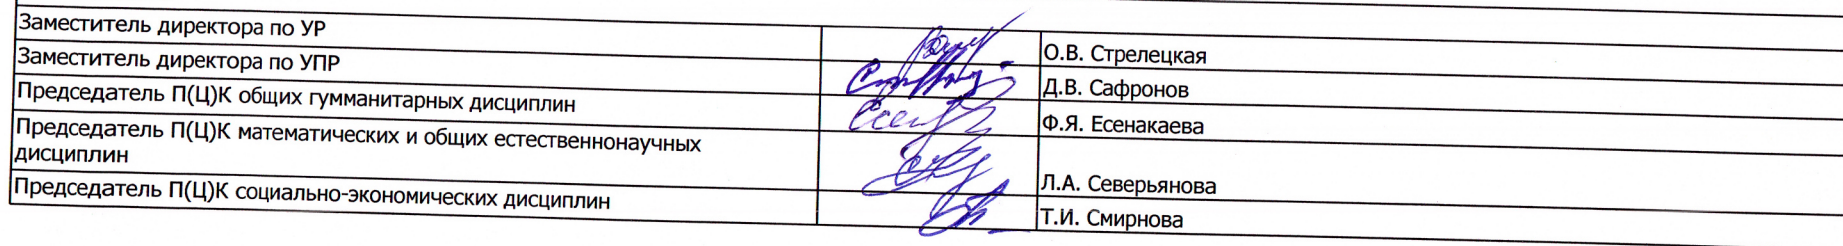 Заместитель директора по УР О.В. Стрелецкая
Заместитель директора по УПР Д.В. Сафронов
Председатель П(Ц)К общих гумманитарных дисциплин Ф.Я. Есенакаева
Председатель П(Ц)К математических и общих естественнонаучных
дисциплин Л.А. Северьянова
Председатель П(Ц)К социально-экономических дисциплин Т.И. Смирнова